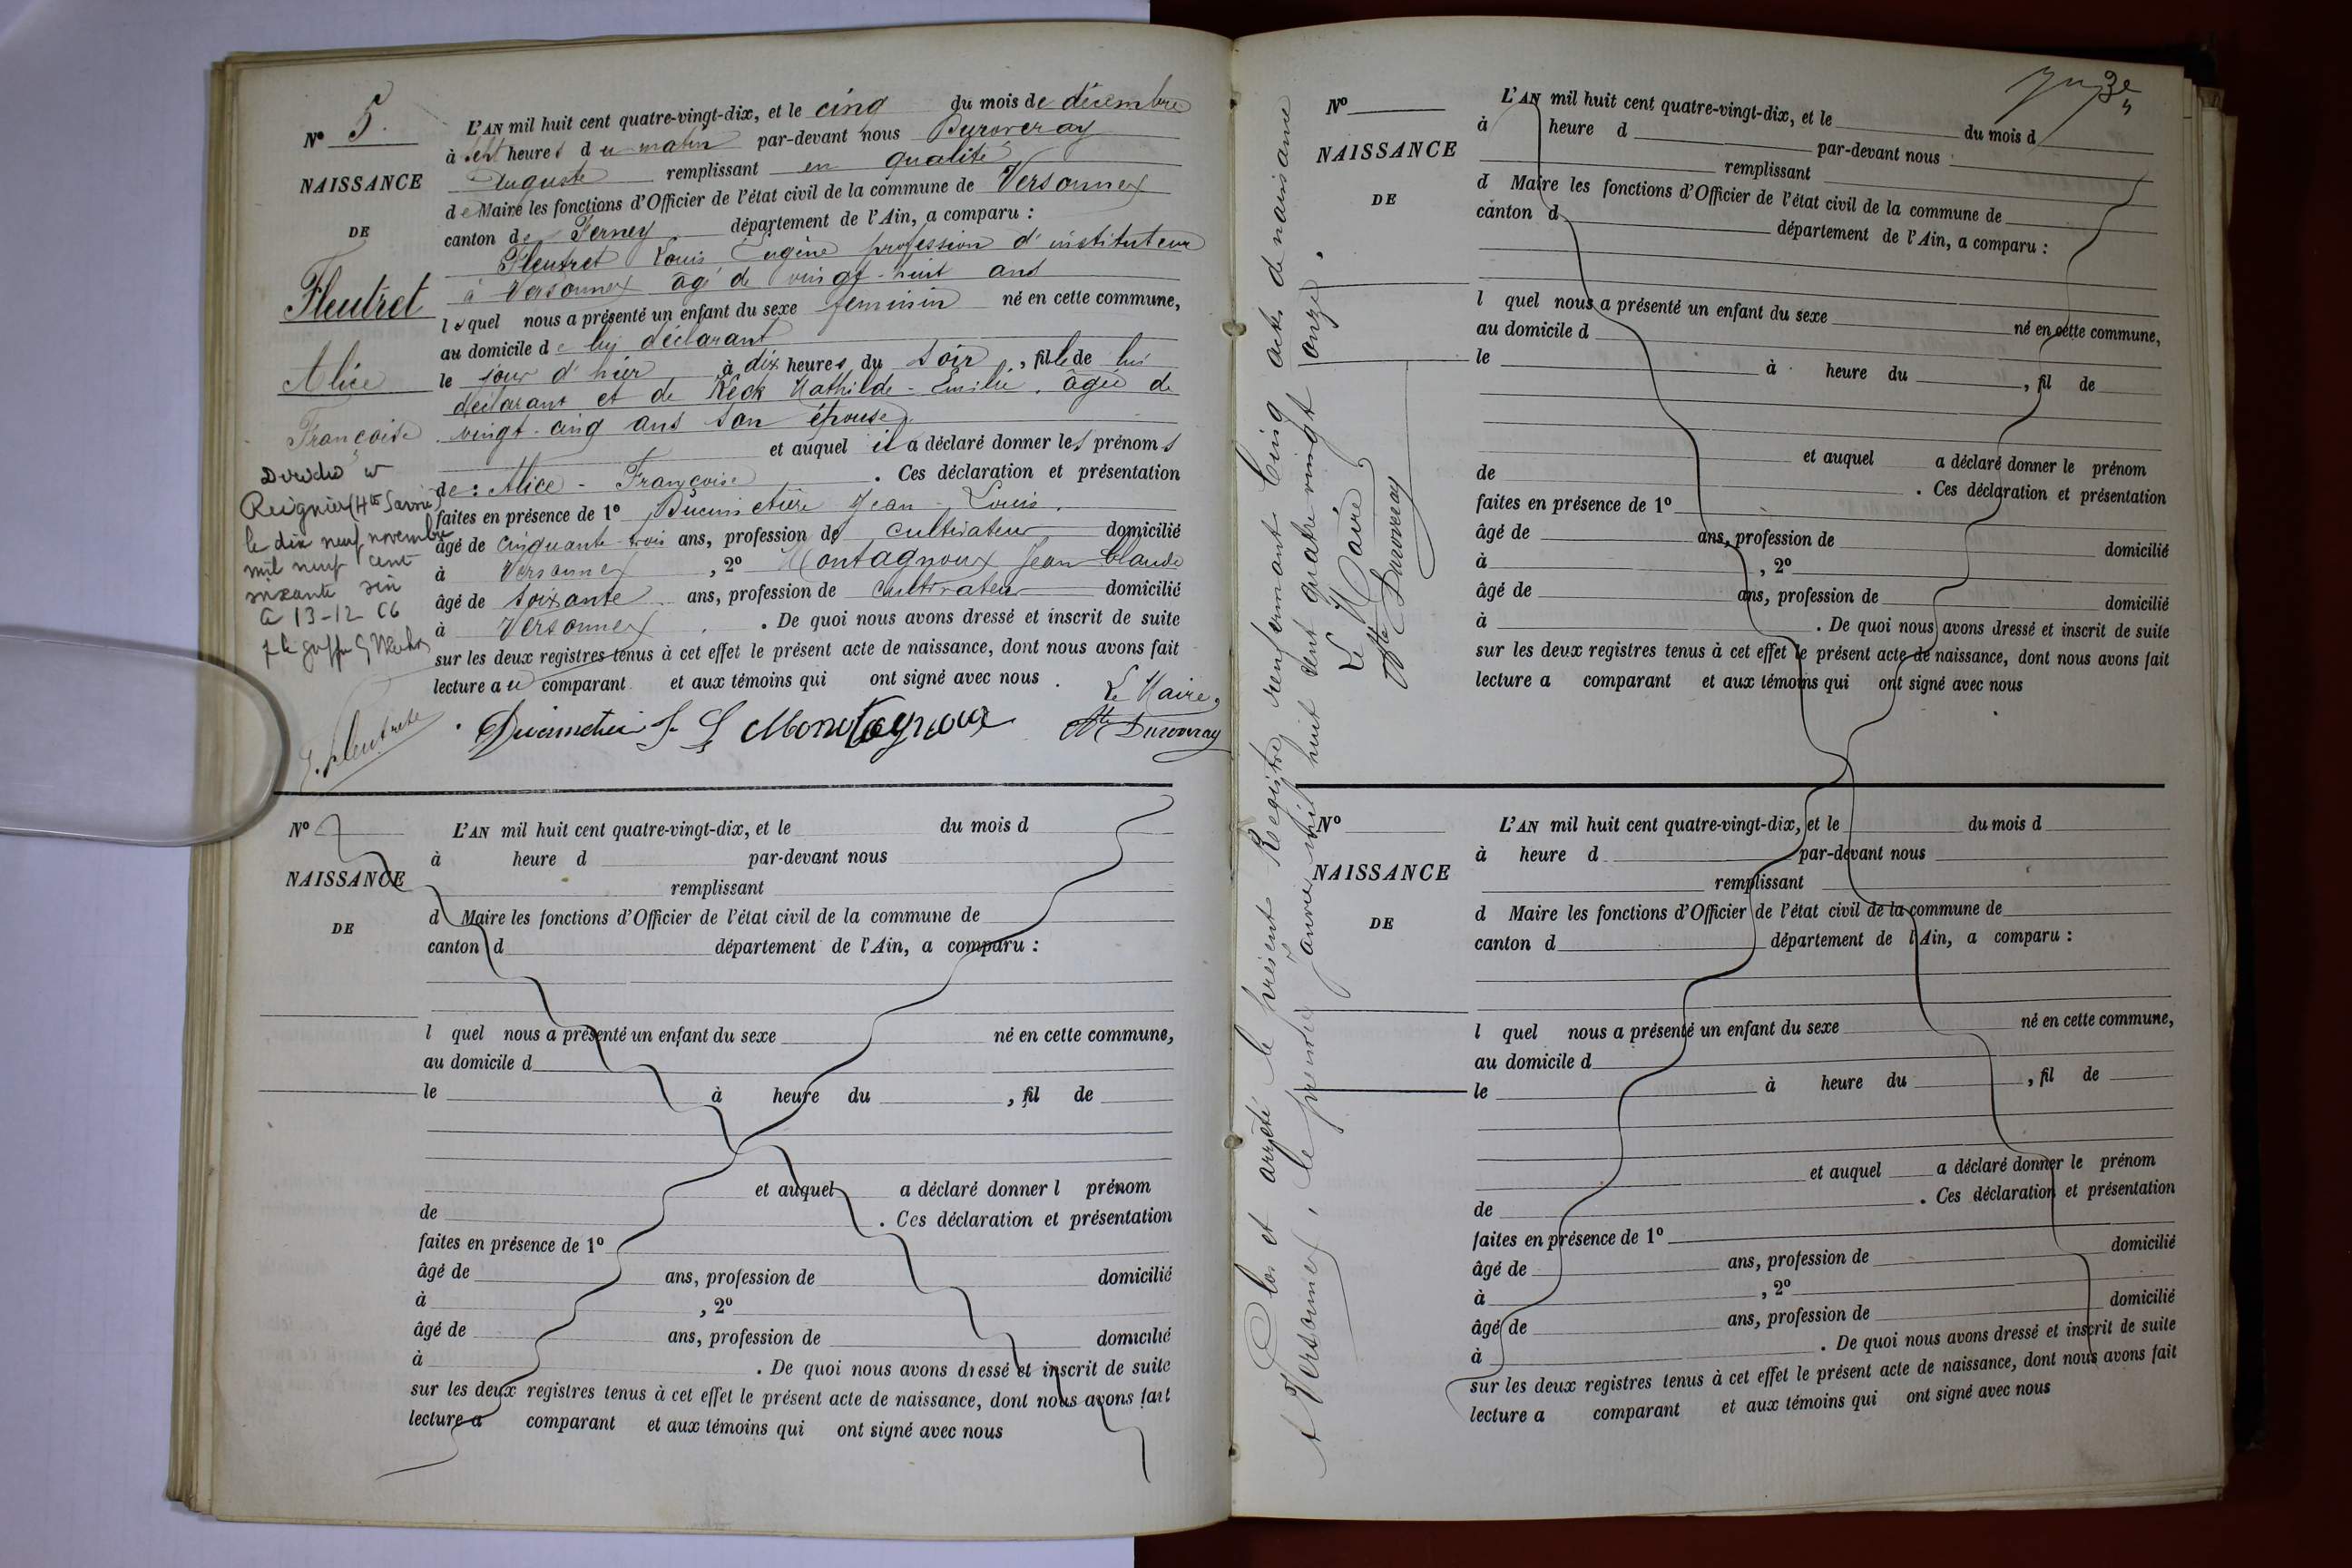 N° 5.
NAISSANCE
DE
Fleutret
Alice
Françoise
Reignier (Hte Savoie)
le dix neuf novembre
mil neuf cent
soixante six
Le 13-12-66
L'AN mil huit cent quatre-vingt-dix, et le cinq du mois de décembre
à sept heures du matin par-devant nous Duroveray
Auguste remplissant en qualité
de Maire les fonctions d'Officier de l'état civil de la commune de Versonnex
canton de Ferney département de l'Ain, a comparu :
Fleutret Louis Eugène profession d'instituteur
à Versonnex âgé de vingt-huit ans
lequel nous a présenté un enfant du sexe feminin né en cette commune,
au domicile de lui déclarant
le jour d'hier à dix heures du soir, fille de lui
déclarant et de Keck Mathilde-Emilie, âgée de
vingt-cinq ans son épouse
et auquel il a déclaré donner les prénoms
de : Alice - Françoise. Ces déclaration et présentation
faites en présence de 1° Ducimetière Jean-Louis,
âgé de cinquante-trois ans, profession de cultivateur domicilié
à Versonnex, 2° Montagnoux Jean Claude
âgé de soixante ans, profession de cultivateur domicilié
à Versonnex. De quoi nous avons dressé et inscrit de suite
sur les deux registres tenus à cet effet le présent acte de naissance, dont nous avons fait
lecture au comparant et aux témoins qui ont signé avec nous.
Le Maire,
E. fleutret
J. L Montagnoux
Ate Duroveray
N°
NAISSANCE
DE
L'AN mil huit cent quatre-vingt-dix, et le du mois d
à heure d par-devant nous
remplissant
d Maire les fonctions d'Officier de l'état civil de la commune de
canton d département de l'Ain, a comparu :
l quel nous a présenté un enfant du sexe né en cette commune,
au domicile d
le à heure du , fil de
et auquel a déclaré donner l prénom
de . Ces déclaration et présentation
faites en présence de 1°
âgé de ans, profession de domicilié
à , 2°
âgé de ans, profession de domicilié
à . De quoi nous avons dressé et inscrit de suite
sur les deux registres tenus à cet effet le présent acte de naissance, dont nous avons fait
lecture a comparant et aux témoins qui ont signé avec nous
Clos et arrêté le présent Registre renfermant cinq actes de naissance
A Versonnex, le premier janvier mil huit cent quatre vingt onze.
Le Maire
Ate Duroveray
N°
NAISSANCE
DE
L'AN mil huit cent quatre-vingt-dix, et le du mois d
à heure d par-devant nous
remplissant
d Maire les fonctions d'Officier de l'état civil de la commune de
canton d département de l'Ain, a comparu :
l quel nous a présenté un enfant du sexe né en cette commune,
au domicile d
le à heure du , fil de
et auquel a déclaré donner le prénom
de . Ces déclaration et présentation
faites en présence de 1°
âgé de ans, profession de domicilié
à , 2°
âgé de ans, profession de domicilié
à . De quoi nous avons dressé et inscrit de suite
sur les deux registres tenus à cet effet le présent acte de naissance, dont nous avons fait
lecture a comparant et aux témoins qui ont signé avec nous
N°
NAISSANCE
DE
L'AN mil huit cent quatre-vingt-dix, et le du mois d
à heure d par-devant nous
remplissant
d Maire les fonctions d'Officier de l'état civil de la commune de
canton d département de l'Ain, a comparu :
l quel nous a présenté un enfant du sexe né en cette commune,
au domicile d
le à heure du , fil de
et auquel a déclaré donner le prénom
de . Ces déclaration et présentation
faites en présence de 1°
âgé de ans, profession de domicilié
à , 2°
âgé de ans, profession de domicilié
à . De quoi nous avons dressé et inscrit de suite
sur les deux registres tenus à cet effet le présent acte de naissance, dont nous avons fait
lecture a comparant et aux témoins qui ont signé avec nous